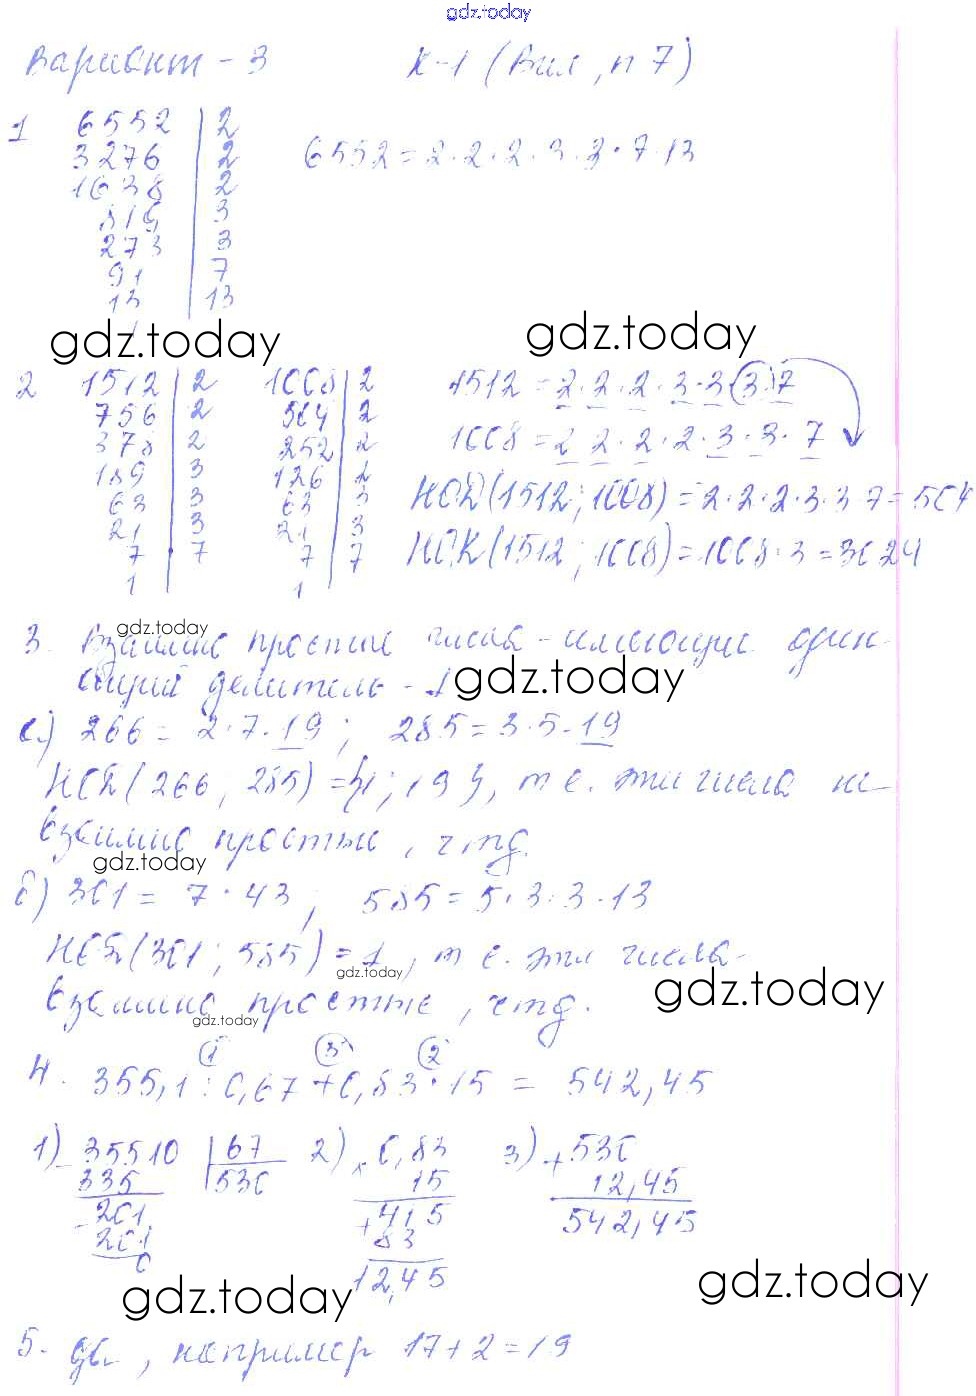 gdz.today
Вариант - 3 К-1 (Вил, п 7)
1 6552 | 2
3276 | 2 6552 = 2·2·2·3·3·7·13
1638 | 2
819 | 3
273 | 3
91 | 7
13 | 13
1
gdz.today gdz.today
2 1512 | 2 1008 | 2 1512 = 2·2·2·3·3·(3)·7
756 | 2 504 | 2
378 | 2 252 | 2 1008 = 2·2·2·2·3·3·7
189 | 3 126 | 2
63 | 3 63 | 3 НОД(1512; 1008) = 2·2·2·3·3·7 = 504
21 | 3 21 | 3
7 | 7 7 | 7 НОК(1512; 1008) = 1008·3 = 3024
1 1
gdz.today
3. Взаимно простые числа - имеющие один
общий делитель - 1
gdz.today
а) 266 = 2·7·19; 285 = 3·5·19
НОД(266; 285) = {1; 19}, т е. эти числа не
взаимно простые, чтд.
gdz.today
б) 301 = 7·43; 585 = 5·3·3·13
НОД(301; 585) = 1, т е. эти числа
gdz.today
взаимно простые, чтд.
gdz.today
gdz.today
1 3 2
4. 355,1 : 0,67 + 0,83 · 15 = 542,45
1) - 35510 | 67 2) × 0,83 3) + 530
335 | 530 15 12,45
- 201 + 415 542,45
201 83
0 12,45
gdz.today gdz.today
5. да, например 17 + 2 = 19